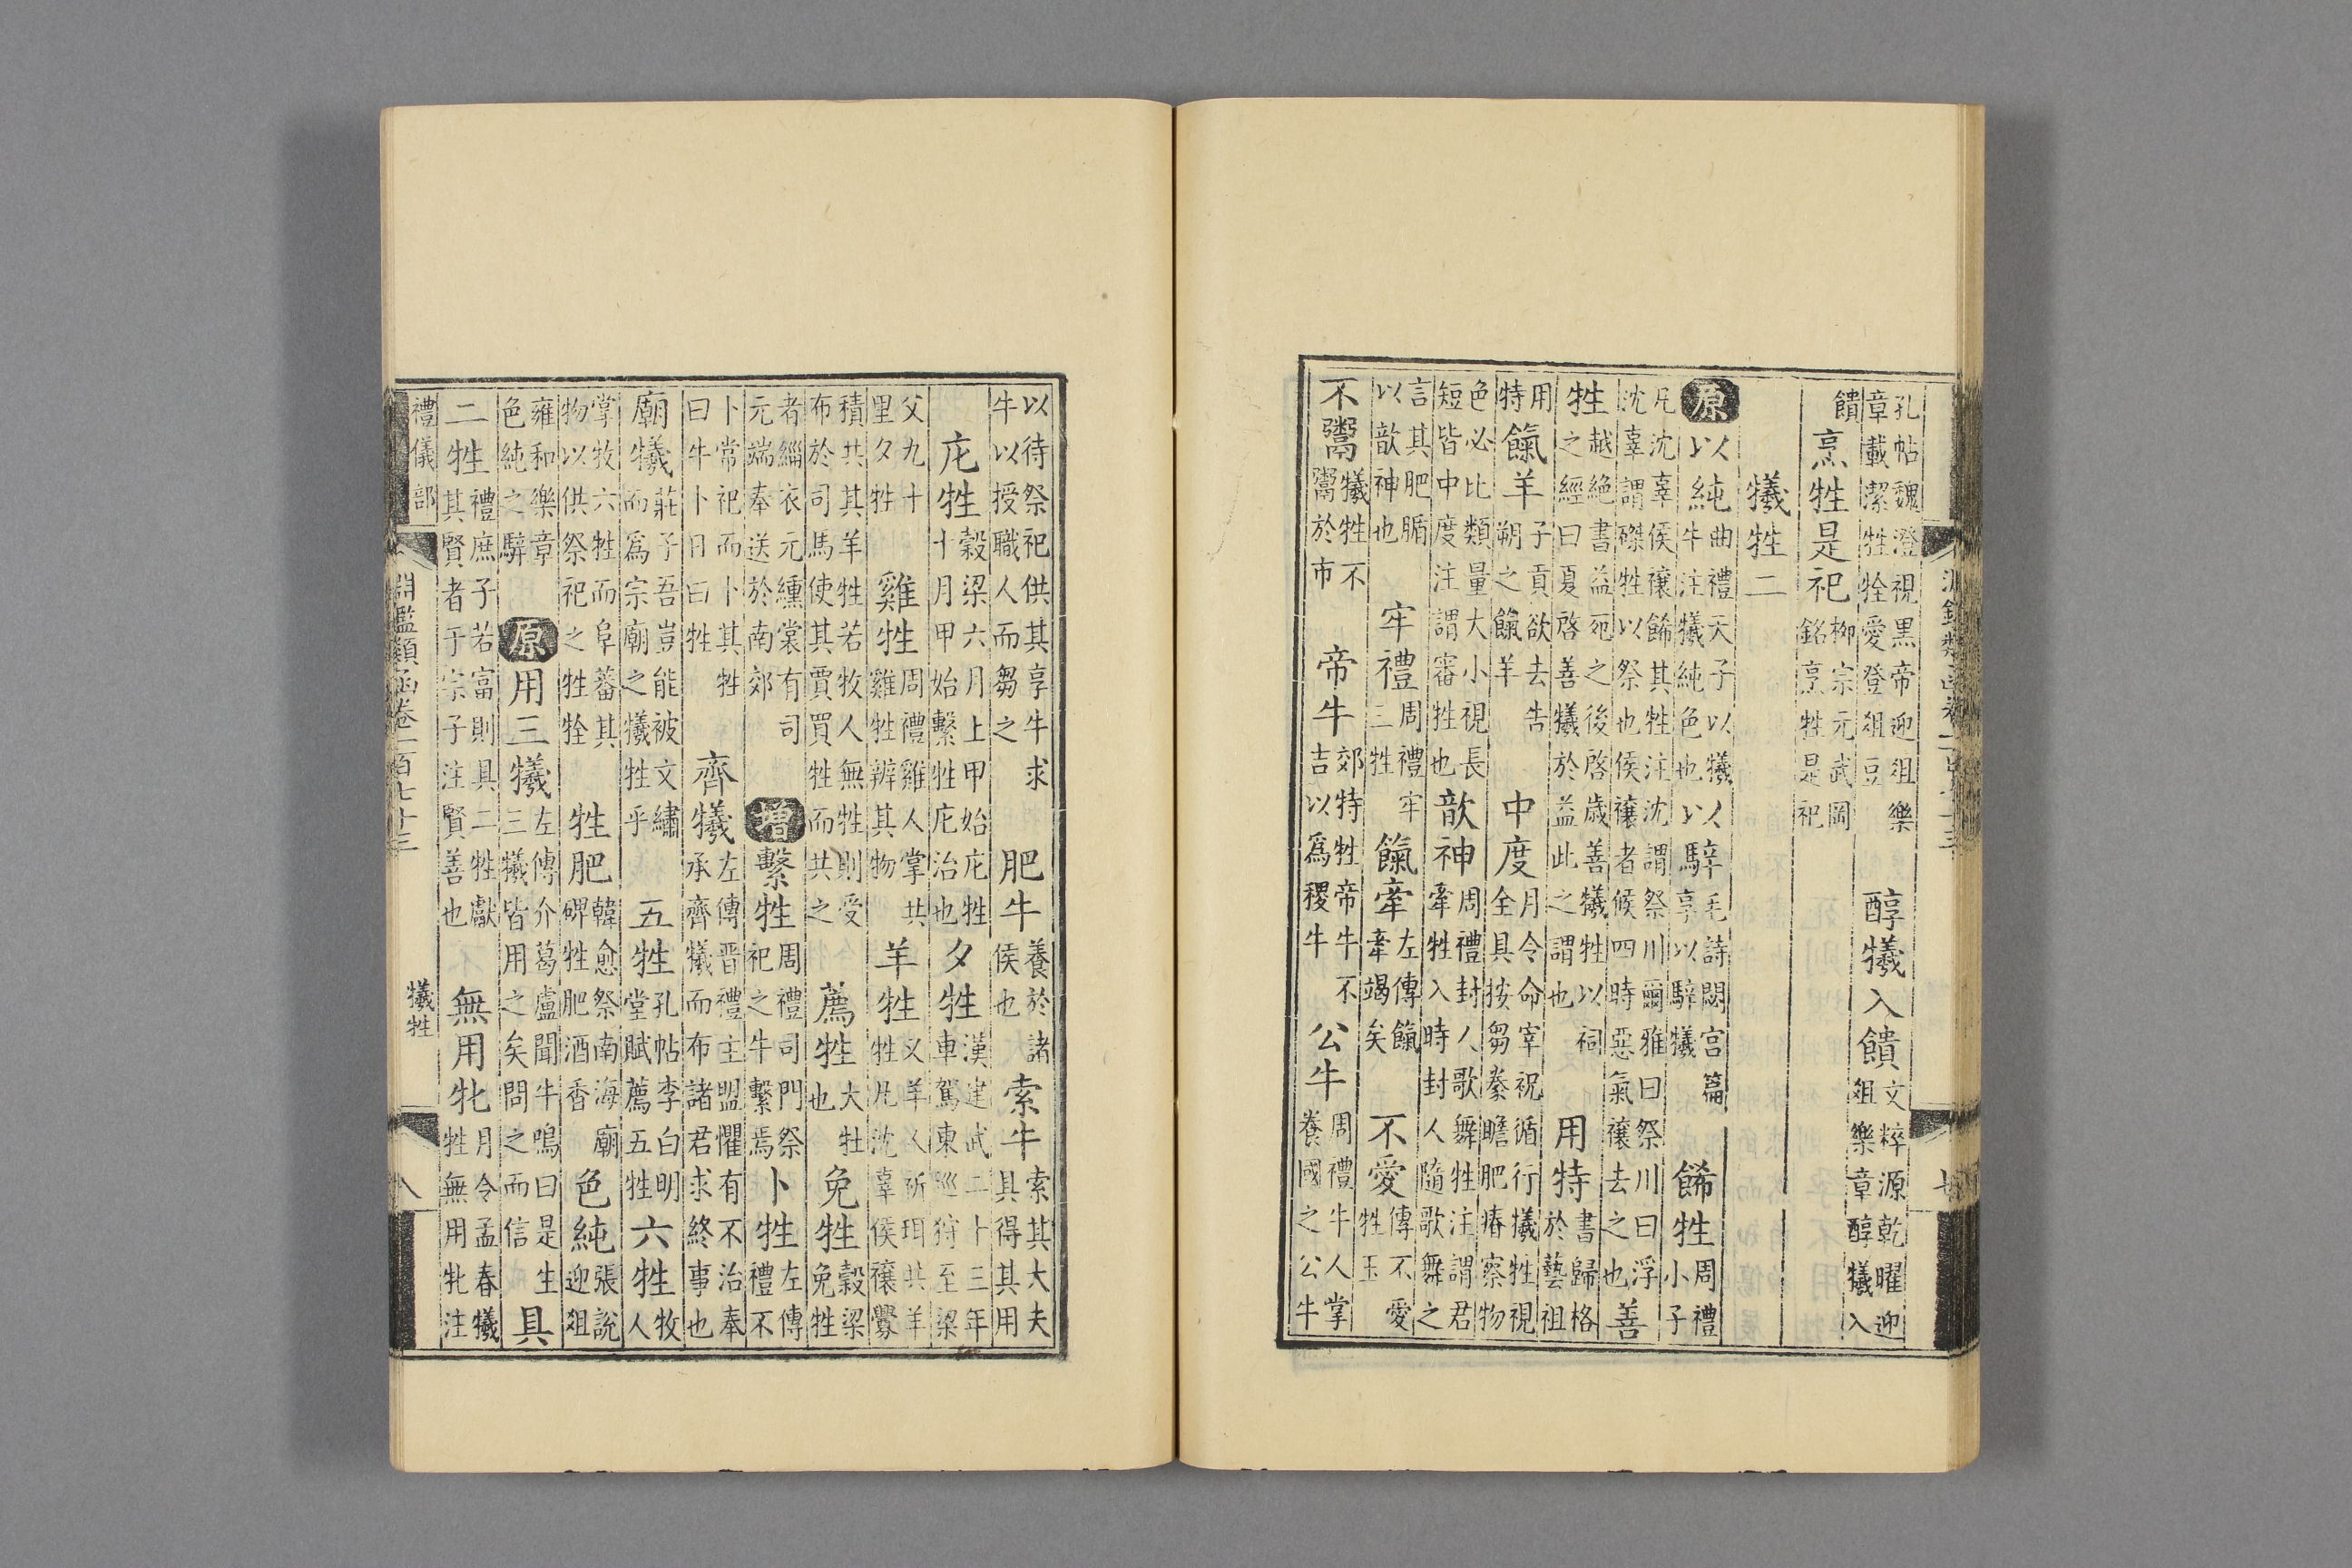 孔帖魏澄視黑帝迎俎樂章載潔牲牷愛登俎豆 醇犧入饋 文粹源乾曜迎俎樂章醇犧入
饋 烹牲是祀 柳宗元武岡銘烹牲是祀
犧牲二
原 以純 曲禮天子以犧牛注犧純色也 以騂 毛詩閟宮篇享以騂犧 餙牲 周禮小子
凡沈辜侯禳餙其牲注沈謂祭川爾雅曰祭川曰浮沈辜謂磔牲以祭也侯禳者候四時惡氣禳去之也 善
牲 越絕書益死之後啓歲善犧牲以祠之經曰夏啓善犧於益此之謂也 用特 書歸格於藝祖
用特 餼羊 子貢欲去告朔之餼羊 中度 月令命宰祝循行犧牲視全具按芻豢瞻肥瘠察物
色必比類量大小視長短皆中度注謂審牲也 歆神 周禮封人歌舞牲注謂君牽牲入時封人隨歌舞之
言其肥腯以歆神也 牢禮 周禮牢三牲 餼牽 左傳餼牽竭矣 不愛 傳不愛牲玉
不鬻 犧牲不鬻於市 帝牛 郊特牲帝牛不吉以爲稷牛 公牛 周禮牛人掌養國之公牛
以待祭祀供其享牛求牛以授職人而芻之 肥牛 養於諸侯也 索牛 索其大夫具得其用
庀牲 穀梁六月上甲始庀牲十月甲始繫牲庀治也 夕牲 漢建武二十三年車駕東巡狩至梁
父九十里夕牲 雞牲 周禮雞人掌共雞牲辨其物 羊牲 又羊人祈珥共羊牲凡沈辜侯禳釁
積共其羊牲若牧人無牲則受布於司馬使其賈買牲而共之 薦牲 大牡也 免牲 穀梁免牲
者緇衣元纁裳有司元端奉送於南郊 增 繫牲 周禮司門祭祀之牛繫焉 卜牲 左傳禮不
卜常祀而卜其牲曰牛卜日曰牲 齊犧 左傳晋禮主盟懼有不治奉承齊犧而布諸君求終事也
廟犧 莊子吾豈能被文繡而爲宗廟之犧牲乎 五牲 孔帖李白明堂賦薦五牲 六牲 牧人
掌牧六牲而阜蕃其物以供祭祀之牲牷 牲肥 韓愈祭南海廟碑牲肥酒香 色純 張說迎俎
雍和樂章色純之騂 原 用三犧 左傳介葛盧聞牛鳴曰是生三犧皆用之矣問之而信 具
二牲 禮庶子若富則具二牲獻其賢者于宗子注賢善也 無用牝 月令孟春犧牲無用牝注
禮儀部 淵鑑類函卷一百七十三 犧牲 八